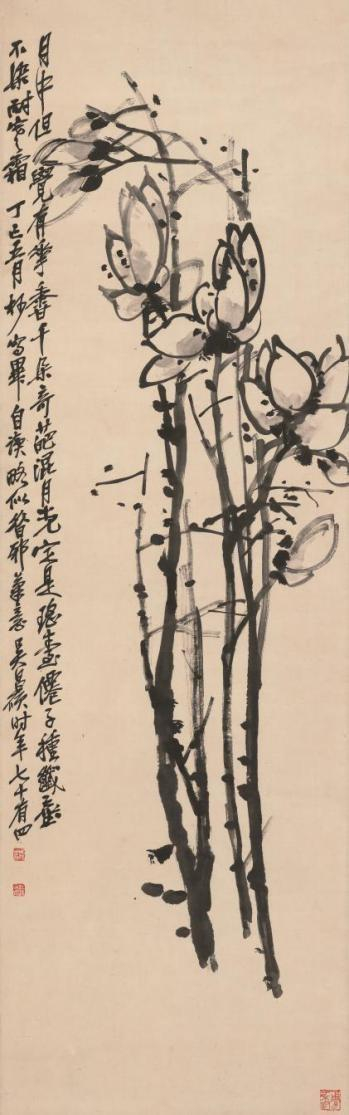 月中但覺有華香千朵奇葩混月光定是瑤臺僊子種纖塵
不染耐寒霜 丁巳五月杪寫畢自讀略似聱邨筆意吳昌碩時年七十有四